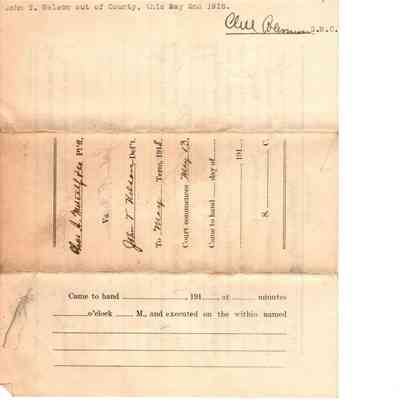 John T. Nelson out of County, this May 2nd 1918.
Clell Coleman S.B.C.
Chas. S. Metcalfe Pl'ff.
Vs.
John T Nelson Def't.
To May Term, 1918
Court commences May 13
Came to hand day of
191
S. C.
Came to hand , 191 at minutes
o'clock M., and executed on the within named